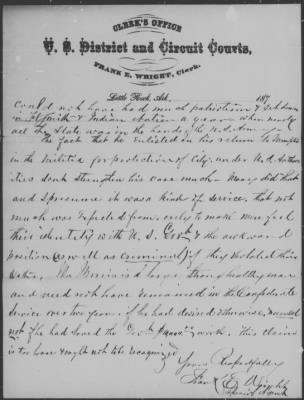 CLERK'S OFFICE
U. S. District and Circuit Courts,
FRANK E. WRIGHT, Clerk.
Little Rock, Ark. 187
could not have had much patriotism &
Indian Nation a year when nearly
all the State was in the hands of the
The fact that he enlisted on his return to Memphis
in the Militia for protection of City, under U.S. author
ities dont strengthen his case much. Many did that
and it was a kind of service, that not
much was expected from, only to make men feel
their identity with U. S. Govt & the awkward
position (as well as criminal) if they violated their
Oaths. is a large strong healthy man
and need not have remained in the Confederate
Service over two years if he had desired otherwise, & would
not if he had loved the Govt much. This claim
is too and ought not to be recognized.
Yours Respectfully
Frank E. Wright
Special Agent